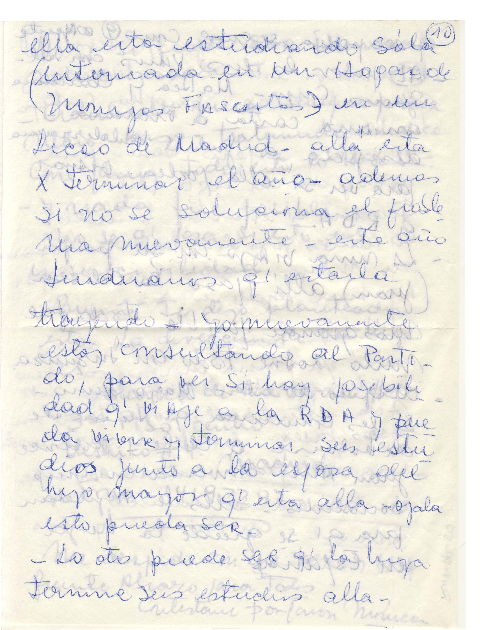 10
ella esta estudiando sola
(internada en un Hogar de
(Monjas FASCistas) en un
Liceo de Madrid - alla esta
X terminar el año - ademas
si no se soluciona el proble
ma nuevamente - este año
tendriamos q' estarla
trayendo - i yo nuevamente
estoy consultando al Parti-
do, para ver si hay posebili-
dad q' viaje a la RDA y pue
da vivir y terminar sus estu
dios junto a la esposa del
hijo mayor q' esta alla ojala
esto pueda SER -
- Lo otro puede SER q' lo haga
termine sus estudios alla -